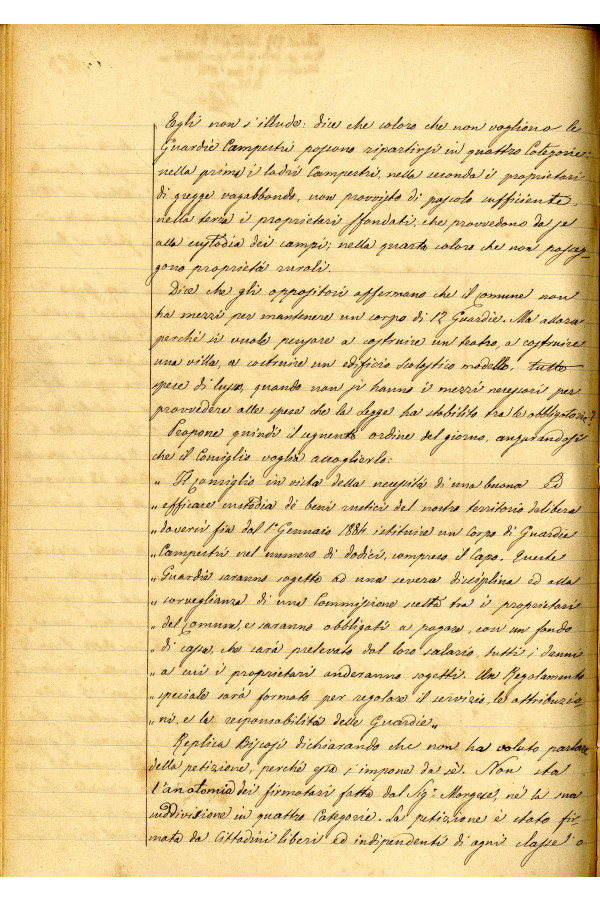 Egli non s'illude: dice che coloro che non vogliono le
Guardie Campestri possono ripartirsi in quattro Categorie:
nella prima i ladri Campestri, nella seconda i proprietari
di gregge vagabbondo, non provvisto di pascolo sufficiente,
nella terza i proprietari sfondati, che provvedono da se
alla custodia dei campi; nella quarta coloro che non posseg-
gono proprietà rurali.
Dice che gli oppositori affermano che il Comune non
ha mezzi per mantenere un corpo di 12 Guardie. Ma allora
perché si vuole pensare a costruire un teatro, a costruire
una villa, a costruire un edificio scolastico modello, tutte
spese di lusso, quando non si hanno i mezzi necessari per
provvedere alle spese che la legge ha stabilito tra le obbligatorie?
Propone quindi il seguente ordine del giorno, augurandosi
che il Consiglio voglia accoglierlo:
„ Il Consiglio in vista della necessità di una buona ed
„ efficace custodia de' beni rustici del nostro territorio delibera
„ doversi fin dal 1° Gennaio 1884 istituire un Corpo di Guardie
„ Campestri nel numero di dodici, compreso il Capo. Queste
„ Guardie saranno sogette ad una severa disciplina ed alla
„ sorveglianza di una Commissione scelta tra i proprietari
„ del Comune, e saranno obbligati a pagare, con un fondo
„ di cassa, che sarà prelevato dal loro salario, tutti i danni
„ a cui i proprietari anderanno sogetti. Un Regolamento
„ speciale sarà formato per regolare il servizio, le attribuzio-
„ ni, e la responsabilità delle Guardie„
Replica Biscosi dichiarando che non ha voluto parlare
della petizione, perché essa s'impone da sè. Non sta
l'anatomia dei firmatari fatta dal Sig.r Morgese, nè la sua
suddivisione in quattro Categorie. La petizione è stata fir-
mata da Cittadini liberi ed indipendenti di ogni classe o